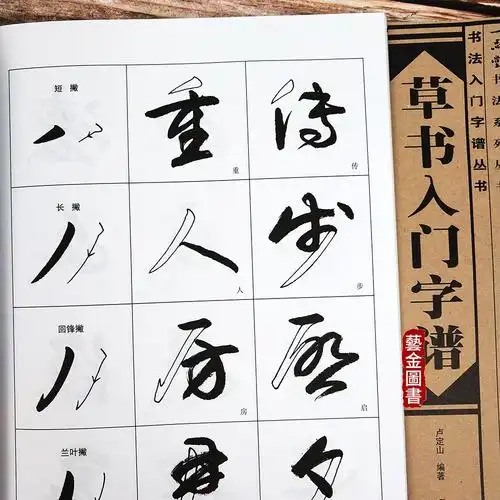 短撇
重
重
传
传
长撇
人
人
步
步
回锋撇
房
房
启
启
兰叶撇
草书入门字谱
书法入门字谱丛书
卢定山 编著
藝金圖書